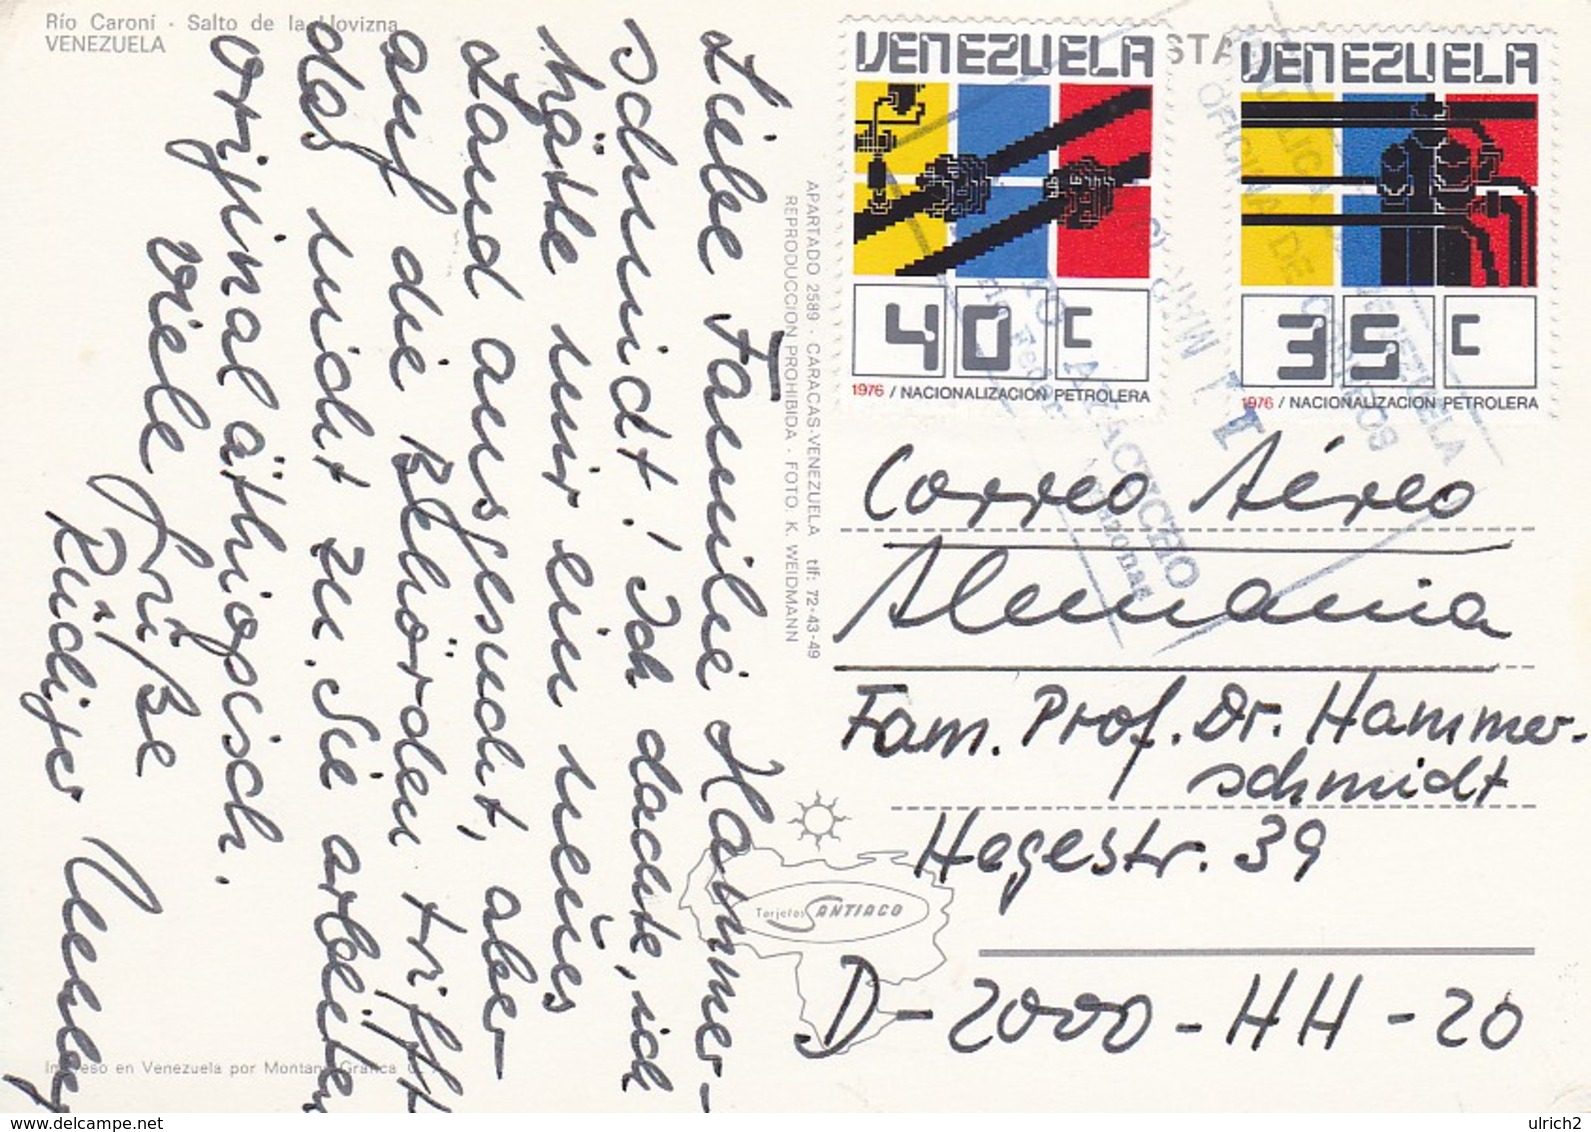 Río Caroní · Salto de la Llovizna
VENEZUELA
Liebe Familie Hammer-
schmidt! Ich dachte, ich
hätte mir ein neues
Land ausgesucht, aber
auf die Behörden trifft
das nicht zu. Sie arbeiten
original äthiopisch.
Viele Grüße
Rüdiger
APARTADO 2589 · CARACAS-VENEZUELA tlf: 72-43-49
REPRODUCCION PROHIBIDA · FOTO. K. WEIDMANN
Tarjetas SANTIAGO
VENEZUELA
40 c
1976 / NACIONALIZACION PETROLERA
VENEZUELA
35 c
1976 / NACIONALIZACION PETROLERA
OFICINA DE CORREOS
AYACUCHO
Correo Aéreo
Alemania
Fam. Prof. Dr. Hammer-
schmidt
Hegestr. 39
D-2000-HH-20
en Venezuela por
ulrich2